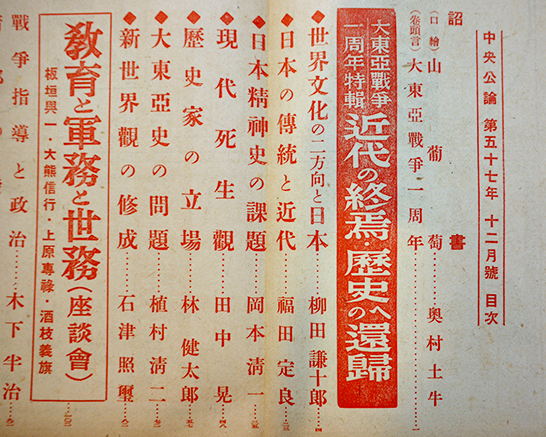 中央公論 第五十七年 十二月號 目次
詔書
(口繪)山葡萄……奧村土牛
(卷頭言)大東亞戰爭一周年……一
大東亞戰爭一周年特輯 近代の終焉・歷史への還歸
◆世界文化の二方向と日本……柳田謙十郎…四
◆日本の傳統と近代……福田定良…三
◆日本精神史の課題……岡本淸一
◆現代死生觀……田中晃
◆歷史家の立場……林健太郎
◆大東亞史の問題……植村淸二
◆新世界觀の修成……石津照璽
敎育と軍務と世務(座談會)
板垣與一・大熊信行・上原專祿・酒枝義旗
戰爭指導と政治……木下半治